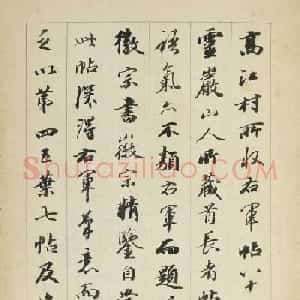 高江村所收右軍帖八十
靈巖山人所藏首長者帖
語氣亦不類右軍而題
徽宗書徽宗精鑒自當
此帖深得右軍筆意而
玄以第四五葉七帖及
Shufazilidao.com